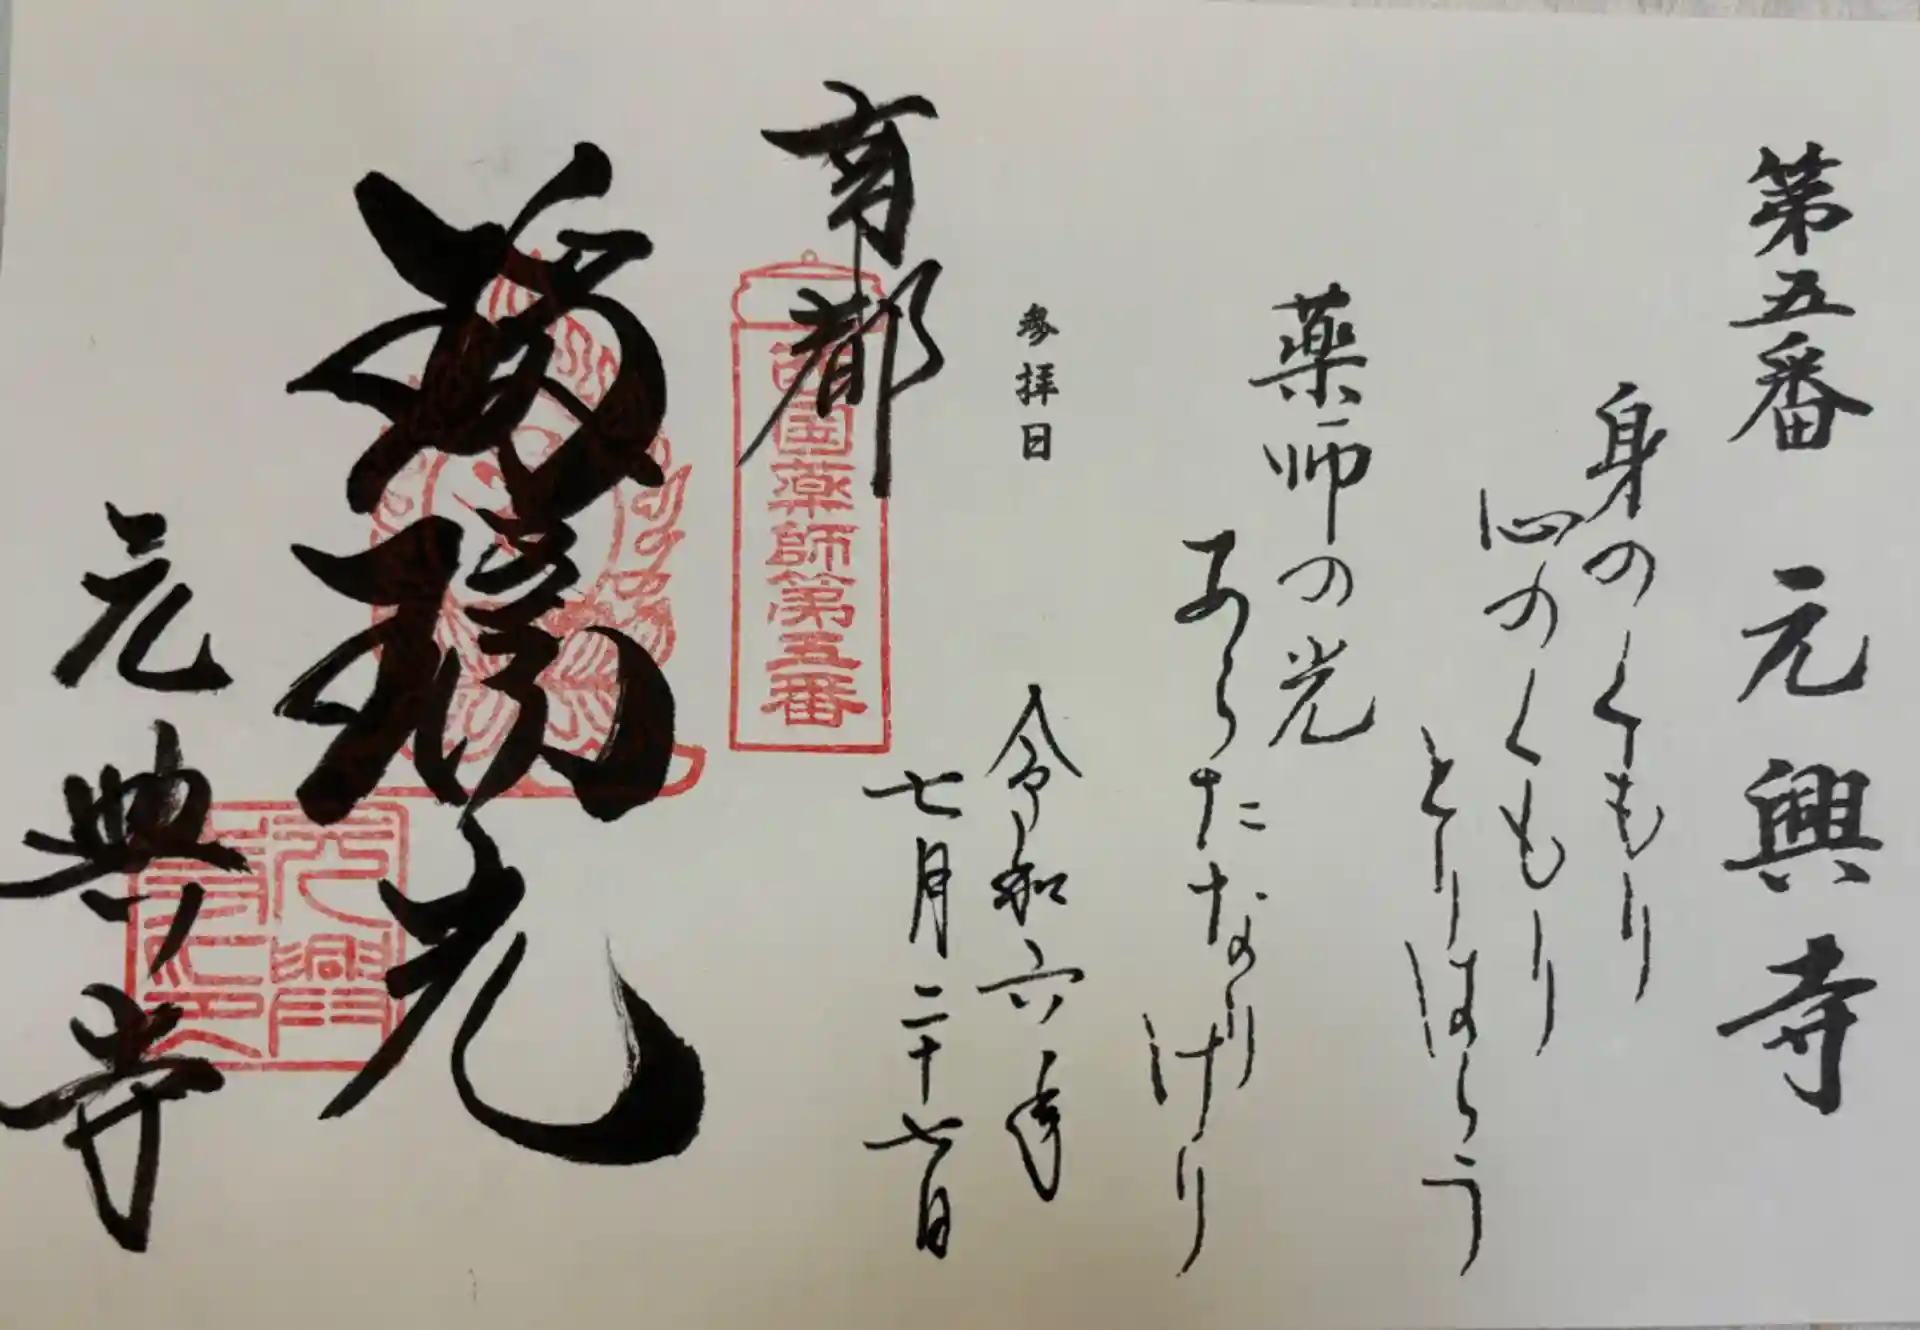 第五番 元興寺
身のくもり
心のくもり
とりはらう
薬師の光
あらたなりけり
参拝日
令和六年
七月二十七日
南都
西国薬師第五番
瑠璃光
元興寺
元興寺印